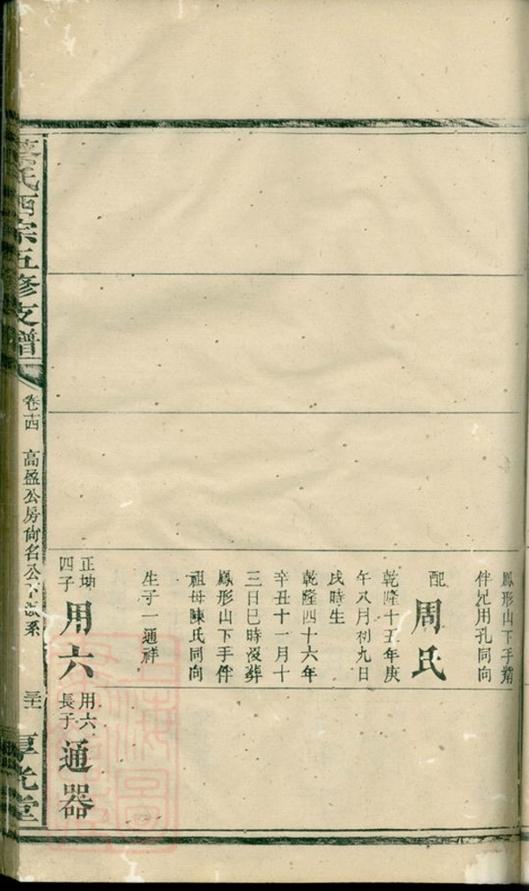 鳳形山下手葬
伴兄用孔同向
配
周氏
乾隆十五年庚
午八月初九日
戌時生
乾隆四十六年
辛丑十一月十
三日巳時沒葬
鳳形山下手伴
祖母陳氏同向
生子一通祥
正坤
四子
用六
用六
長子
通器
氏西宗五修支譜
卷十四
高盈公房尚名公下派系
厚光堂